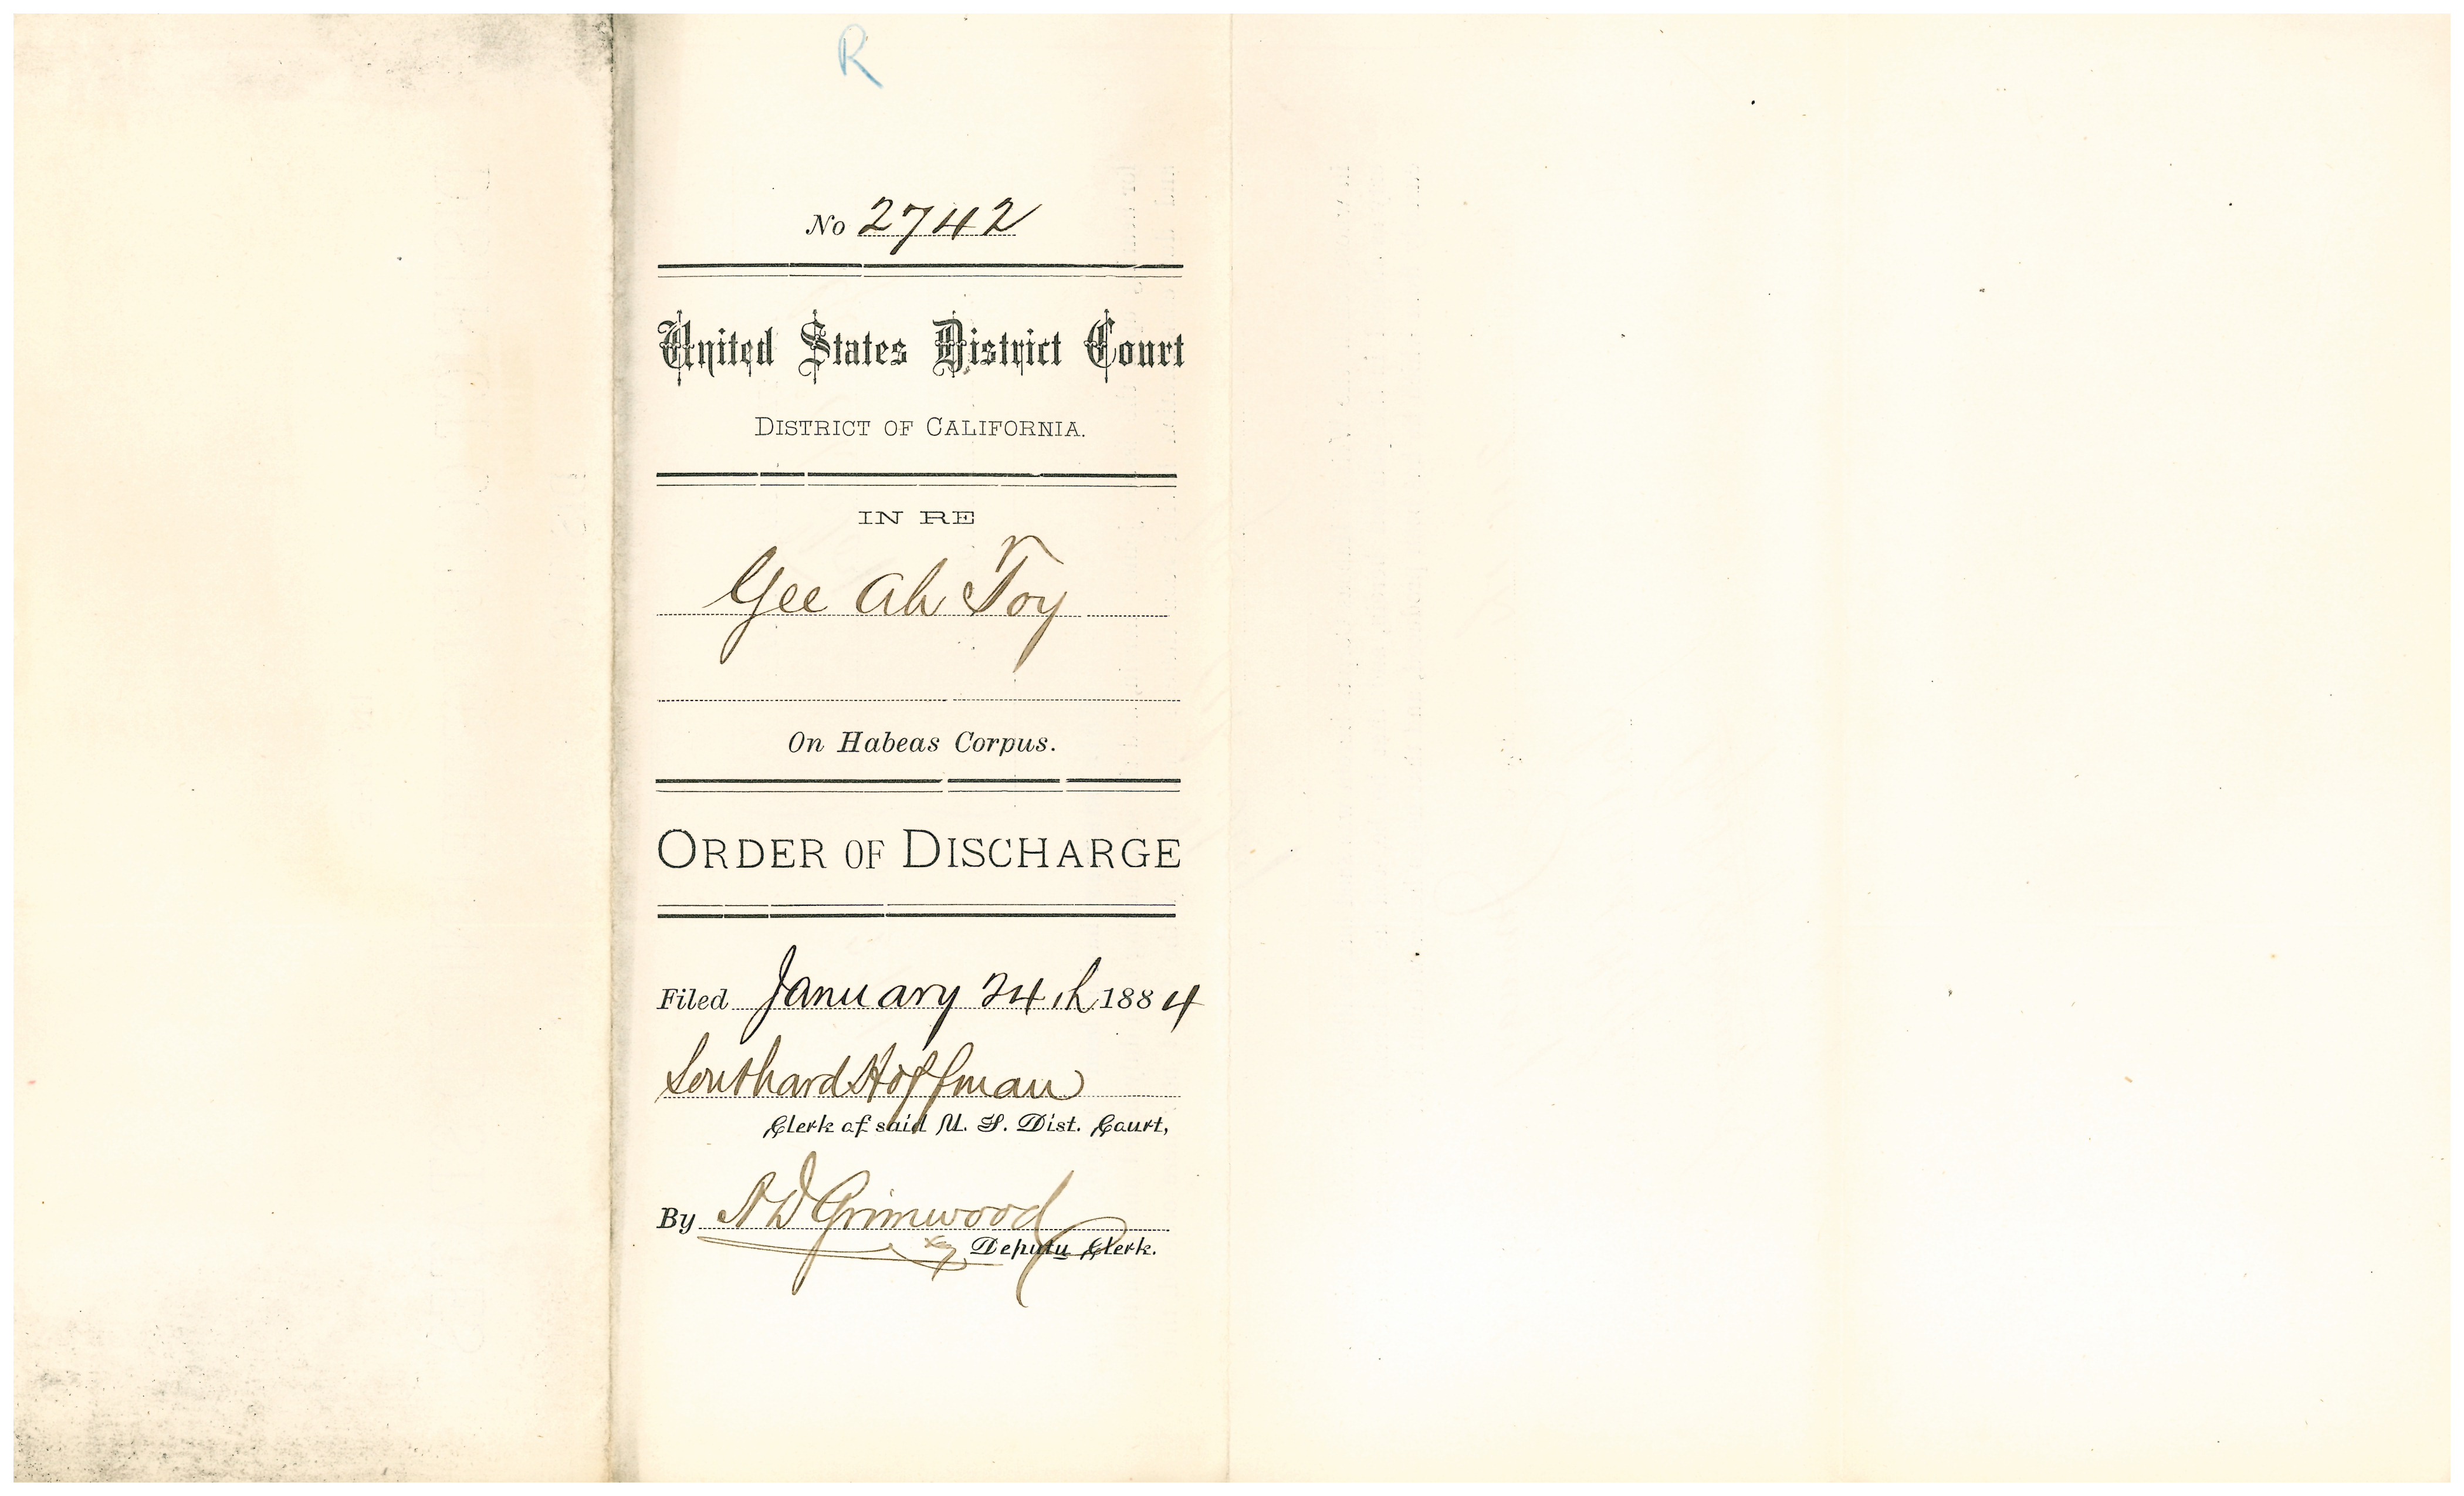 R
No 2742
United States District Court
DISTRICT OF CALIFORNIA.
IN RE
Gee Ah Toy
On Habeas Corpus.
ORDER OF DISCHARGE
Filed January 24th 1884
Southard Hoffman
Clerk of said U. S. Dist. Court,
By Grimwood
Deputy Clerk.